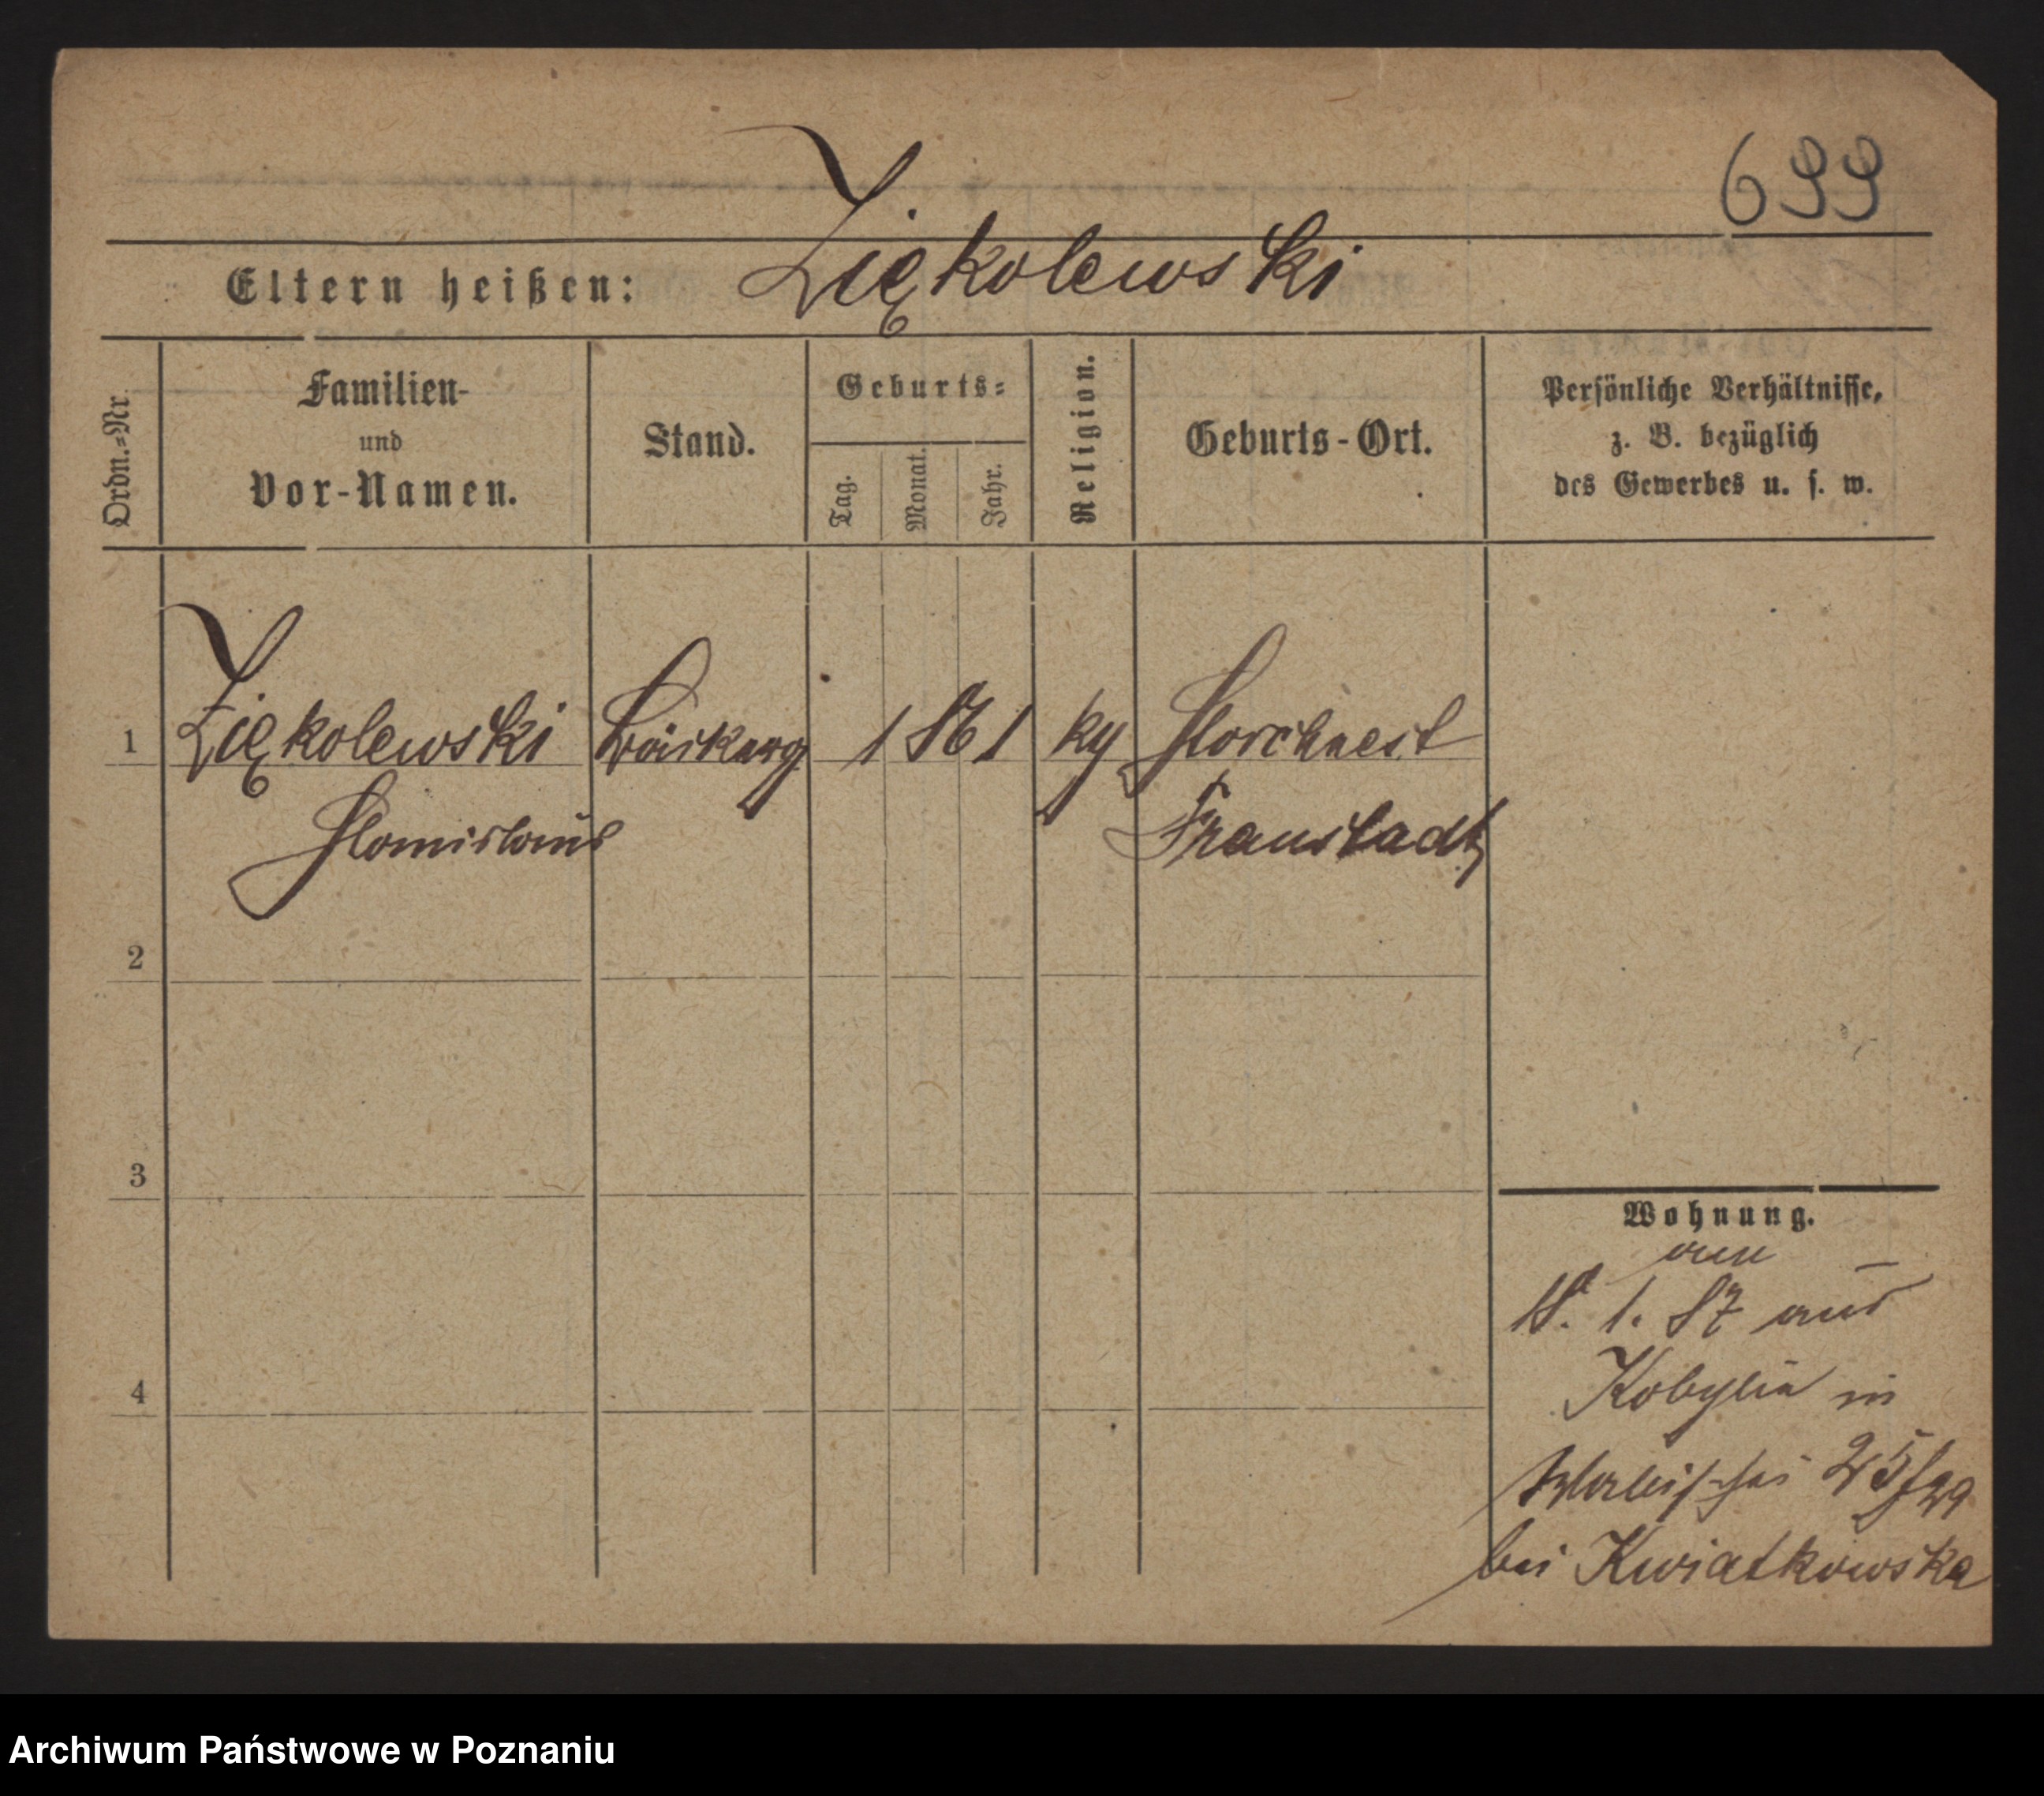 699
Eltern heißen: Ziękolewski
Ordn.=Nr.
Familien-
und
Vor-Namen.
Stand.
Geburts=
Tag.
Monat.
Jahr.
Religion.
Geburts-Ort.
Persönliche Verhältnisse,
z. B. bezüglich
des Gewerbes u. s. w.
1 Ziękolewski 1861 Storchnest
Stanislaus Fraustadt
2
3
4
Wohnung.
18. 1. 87 aus
Kobylin in
Wallischei
bei Kwiatkowska
Archiwum Państwowe w Poznaniu